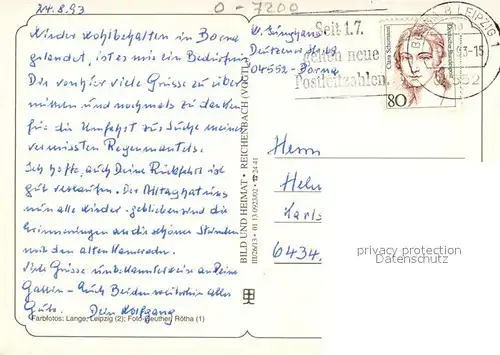 24.8.93
0-7200
Wieder wohlbehalten in Borna
gelandet, ist es mir ein Bedürfnis
Dir von hier viele Grüsse zu über-
mitteln und nochmals zu danken
für die Umfahrt zur Suche meines
vermissten Regenmantels.
Ich hoffe, auch Deine Rückfahrt ist
gut verlaufen. Der Alltag hat uns
nun alle wieder - geblieben sind die
Erinnerungen an die schönen Stunden
mit den alten Kameraden.
Viele Grüsse unbekannterweise an Deine
Gattin - Euch Beiden weiterhin alles
Gute. Dein Wolfgang
Farbfotos: Lange, Leipzig (2); Foto-Reuther, Rötha (1)
BILD UND HEIMAT · REICHENBACH (VOGTL)
III/26/13 · 01 13 0923/02 · 24 41
W.
04552 - Borna
Seit 1.7.
gelten neue
Postleitzahlen.
LEIPZIG
93-15
04552
Clara Schumann
Deutsche Bundespost
80
Herrn
Helm
Karls
6434
privacy protection
Datenschutz